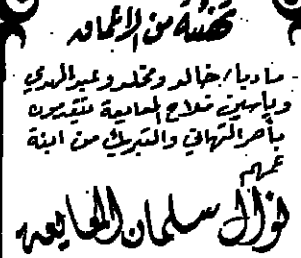 تهنئة من الأعماق
ماديا/خالد ومخلد وعبد المهدي
وياسين فلاح المعايعة يتقدمون
بأحر التهاني والتبريك من ابنة
عمهم
نوال سلمان المعايعه